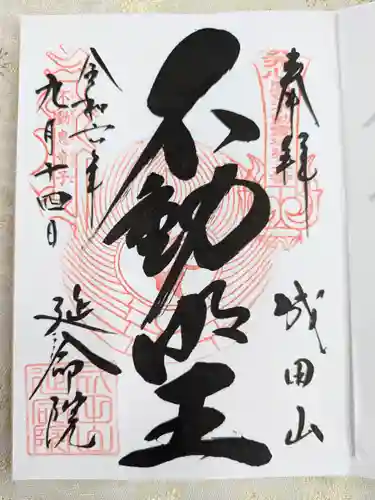 奉拝
成田山
不動明王
令和六年
九月十四日
延命院